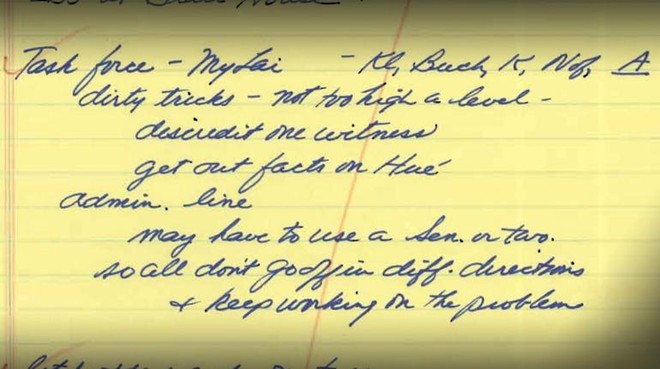 Task force – My Lai – Kl, Buch, K, Nof, A
dirty tricks – not too high a level –
discredit one witness
get out facts on Hué
admin. line
may have to use a Sen. or two.
so all don't go off in diff. directions
+ keep working on the problem